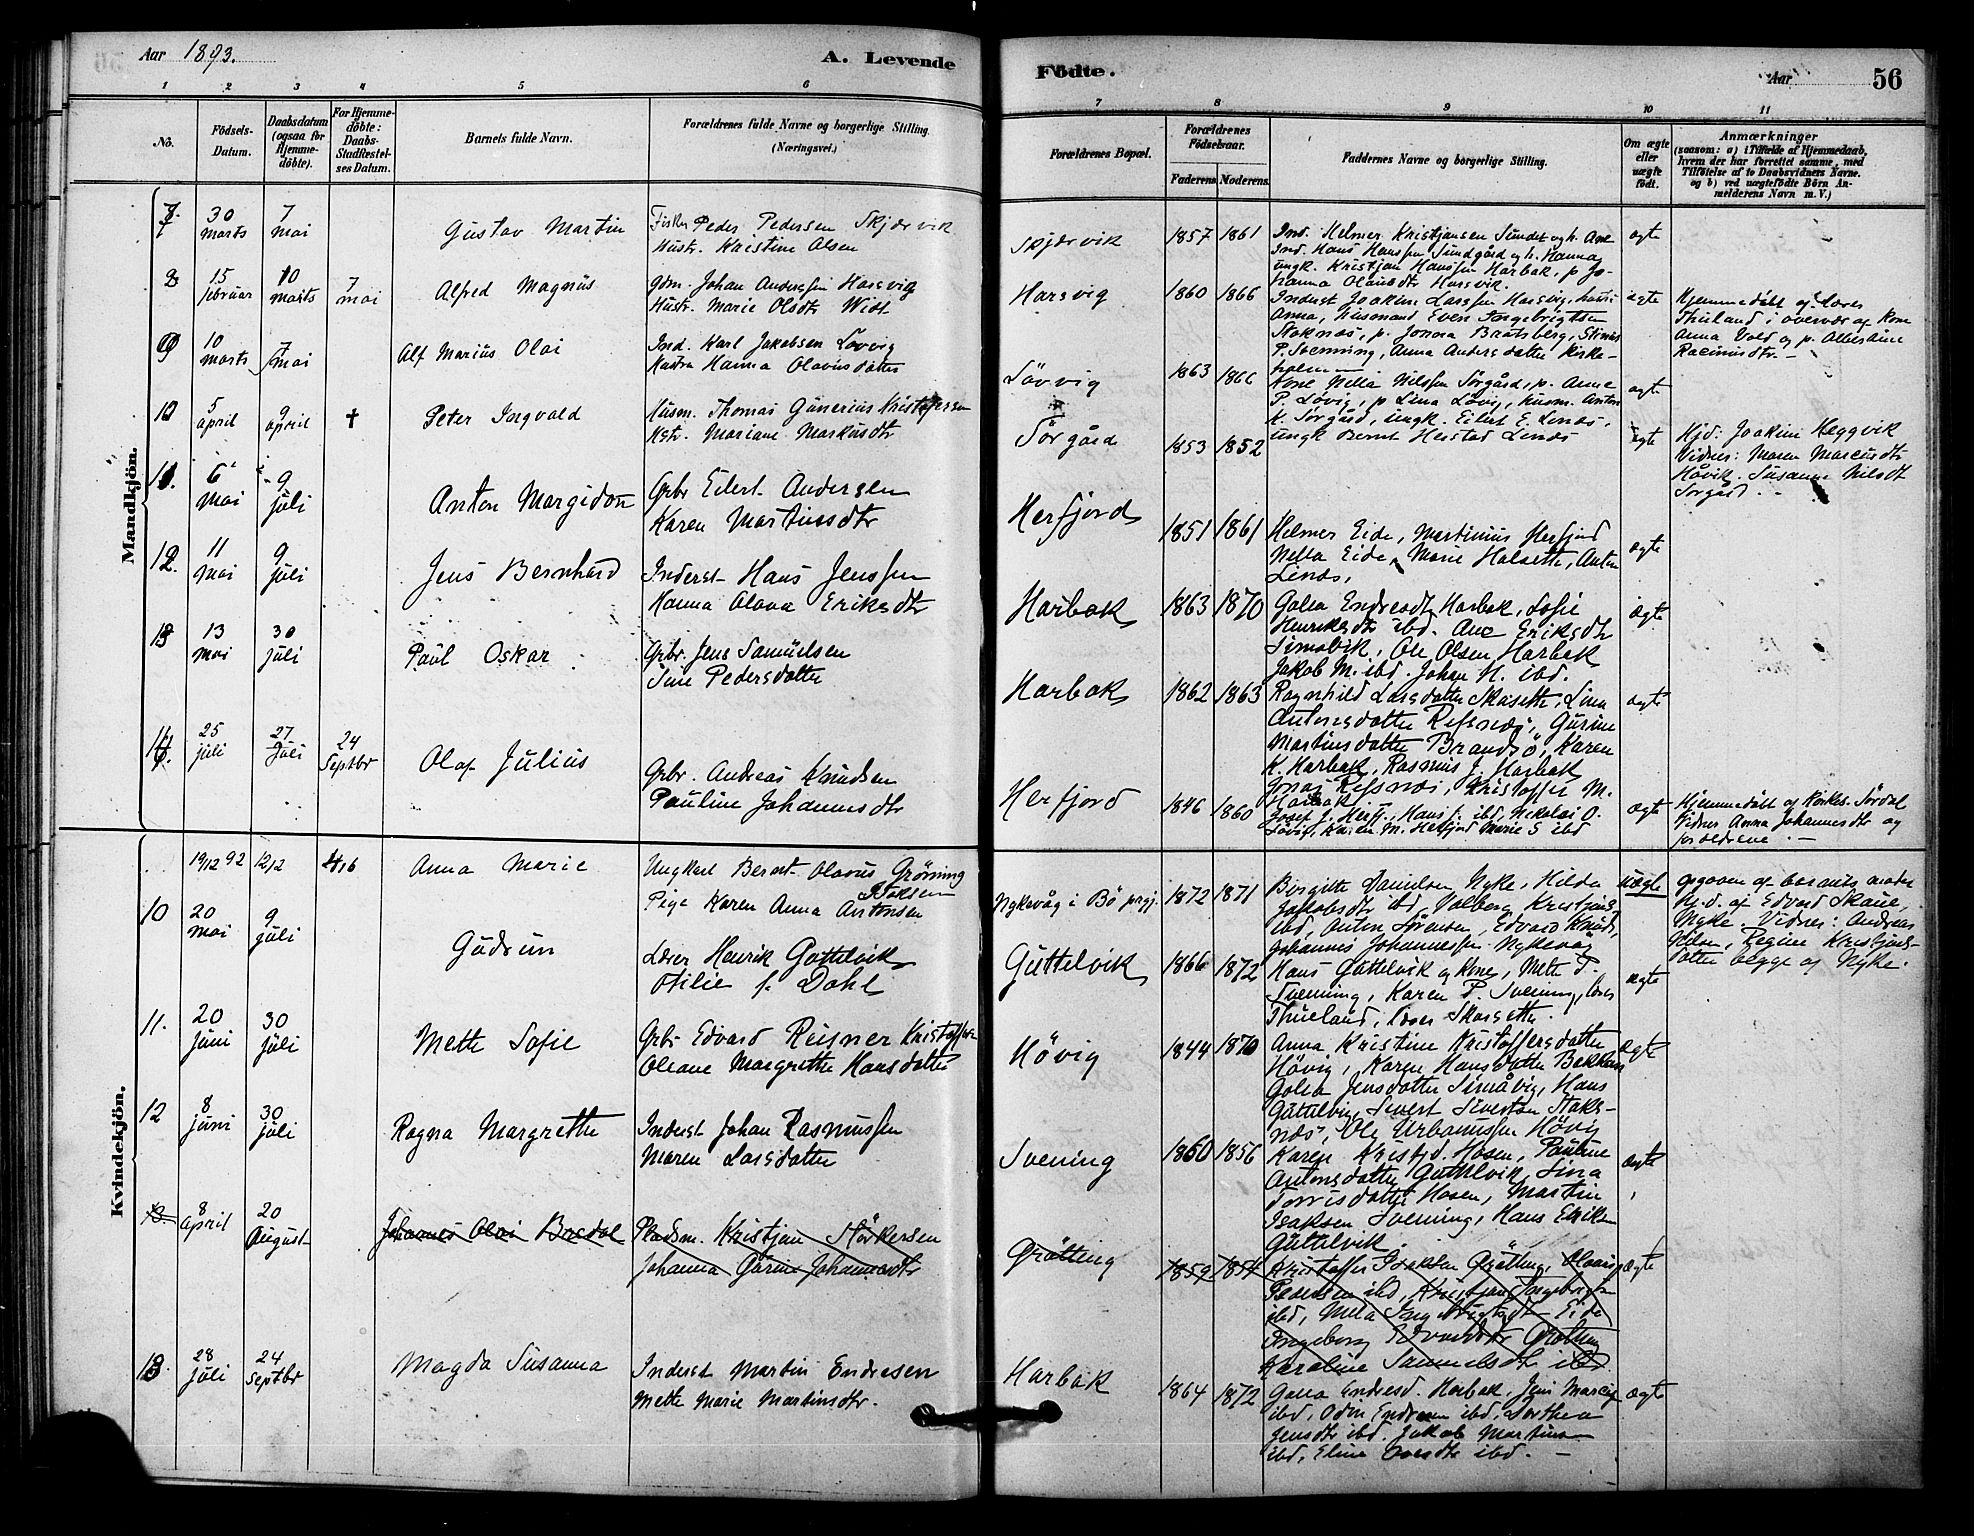 Aar 1893.
A. Levende
1 2 3 4 5 6
No.
Födsels-Datum.
Daabsdatum (ogsaa for Hjemmedöbte).
For Hjemmedöbte: Daabs-Stadfæstelses Datum.
Barnets fulde Navn.
Forældrenes fulde Navne og borgerlige Stilling. (Næringsvei.)
Mandkjön.
7. 30 marts 7 mai Gustav Martin Fisker Peder Pedersen Skjærvik
Hustr. Kristine Olsen
8 15 februar 10 marts 7 mai Alfred Magnus Gdm. Johan Anderssen Harsvig
Hustr. Marie Olsdtr
9 10 marts 7 mai Alf Marius Olai Ind. Karl Jakobsen Lövvig
Hustru Hanna Olavusdatter
10 5 april 9 april † Peter Ingvald Husm. Thomas Gunerius Kristoffersen
Hstr. Mariane Markusdtr
11. 6 mai 9 juli Anton Margidon Grbr Eilert Andersen
Karen Martinusdtr
12. 11 mai 9 juli Jens Bernhard Inderst Hans Jenssen
Hanna Olava Eriksdtr
13 13 mai 30 juli Paul Oskar Grbr. Jens Samuelsen
Sine Pedersdatter
14. 25 juli 27 juli 24 Septbr Olaf Julius Grbr. Andreas Knudsen
Pauline Johannesdtr
Kvindekjön.
19/12 92 12/2 4/6 Anna Marie Ungkarl Bernt Olavus Grönning
Pige Karen Anna Antonsen
10 20 mai 9 juli Gudrun Lærer Henrik Guttelvik
Otilie f. Dahl
11. 20 juni 30 juli Mette Sofie Grbr Edvard Reisner Kristoffersen
Oleane Margrethe Hansdatter
12 8 juni 30 juli Ragna Margrethe Inderst Johan Rasmussen
Maren Larsdatter
13. 8 april 20 August Johannes Olai Bredal Pladsm. Kristjan Störkersen
Johanna Gurine Johannesdtr
13. 28 juli 24 Septbr Magda Susanna Inderst Martin Endresen
Mette Marie Martinsdtr.
Födte.
Aar
56
7 8 9 10 11
Forældrenes Bopæl.
Forældrenes Födselsaar.
Faderens. Moderens.
Faddernes Navne og borgerlige Stilling.
Om ægte eller uægte födt.
Anmærkninger
(saasom: a) i Tilfælde af Hjemmedaab,
hvem der har forrettet samme, med
Tilföielse af to Daabsvidners Navne.
og b) ved uægtefödte Börn Anmelderens Navn m. V.)
Skjærvik 1857 1861 Ind. Helmer Kristjansen Sundet og h. Ane
Ind. Hans Hanssen Sundgård og h. Hanna
ungk. Kristjan Hanssen Harbak, p Johanna Olausdtr Harsvik. ægte
Harsvig 1860 1866 Inderst Joakim Larssen Harsvig, hustru
Anna, husmand Even Ingebrigtsen
Stoknæs, p. Jonna Bratsberg,
P. Svenning, Anna Andersdatter Kirkeholmen ægte
Hjemmedöbt af Lærer
Thuland i overvær af kone
Anna Vold og p. Albertine
Rasmusdtr. —
Lövvig 1863 1866 Kone Nella Nilssen Sörgård, p. Anne
P. Lövig, p Lina Lövig, husm. Anton
K. Sörgård, ungk. Eilert E. Lenæs,
ungk Bernt Heistad Lenæs ægte
Sörgård 1853 1852 ægte
Hjd: Joakim Heggvik
Vidner: Maren Marcusdtr
Håvik. Susanne Nilsdt
Sörgård. —
Herfjord 1851 1861 Helmer Eide, Martinus Herfjord
Nella Eide, Marie Halsette, Anton
Linæs, ægte
Harbak 1863 1870 Golea Endresdtr Harbak, Sofie
Henriksdtr ibd. Ane Eriksdtr
Simavik, Ole Olsen Harbak
Jakob M. ibd. Johan H. ibd. ægte
Harbak 1862 1863 Ragnhild Larsdatter Skåsette, Lina
Antonsdatter Refsnæs, Gurine
Martinsdatter Brandsö, Karen
K. Harbak, Rasmus J. Harbak
Jonas Refsnæs, Kristoffer M.
Harbak ægte
Herfjord 1846 1860 Josef J. Herfj., Hans J. ibd, Nikolai O.
Lövig, Karen M. Herfjord Marie S ibd ægte
Hjemmedöbt af Kirkes. Sördal
Vidner Anna Johannesdtr og
forældrene. —
Nykvåg i Bö prgj. 1872 1871 Birgitte Danielsen Nyke, Hilda
Jakobsdtr ibd, Valberg Kristjans
ibd, Anton Sörensen, Edvard Knuds,
Johannes Johannessen Nykvåg uægte
Opgaven af barnets moder
Hj.d. af Edvard Skaue,
Nyke. Vidner: Andreas
Olsen, Regine Kristjansdatter begge af Nyke.
Guttelvik 1866 1872 Hans Guttelvik og kone, Mette P.
Svenning, Karen P. Svening, lærer
Thueland, Skarsette. ægte
Hövig 1844 1870 Anna Kristine Kristoffersdatter
Hövig, Karen Hansdatter Bekken
Golea Jensdatter Simåvig, Hans
Guttelvig, Sivert Sivertsen Stoknæs, Ole Urbanussen Hövig ægte
Svening 1860 1856 Karen Kristjd. Hosen, Pauline
Antonsdatter Guttelvik, Lina
Torrisdatter Hosen, Martin
Isaksen Svening, Hans Eriksen
Guttelvik ægte
Grötting 1859 1854 Kristoffer Isaksen Grötting, Olaus
Pedersen ibd, Kristjan Ingebrigtsen
ibd, Meta Ingebrigtsdtr Eide
Ingeborg Edvardsdtr Grötting
Karoline Samuelsdtr ibd ægte
Harbak 1864 1872 Golea Endresd. Harbak, Jens
ibd, Odin Endresen ibd, Dorthea
Jensdtr ibd. Jakob Martinsen
ibd, Eline ibd. — ægte